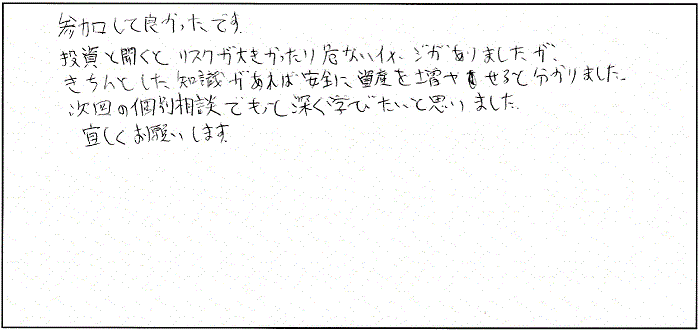 参加して良かったです。
投資と聞くと、リスクが大きかったり危ないイメージがありましたが、
きちんとした知識があれば安全に資産を増やせると分かりました。
次回の個別相談でもっと深く学びたいと思いました。
宜しくお願いします。